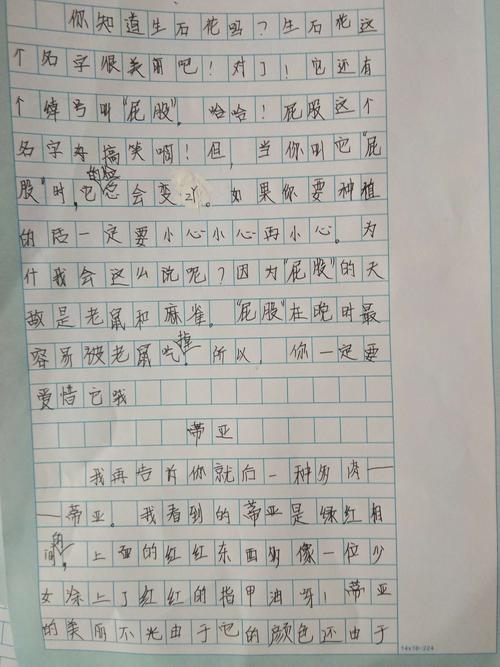 你知道生石花吗？生石花这
个名字很美丽吧！对了！它还有
个绰号叫"屁股"。哈哈！屁股这个
名字好搞笑啊！但，当你叫它"屁
股"时，它的脸总会变红。如果你要种植
的话一定要小心小心再小心。为
什我会这么说呢？因为"屁股"的天
敌是老鼠和麻雀。"屁股"在晚时最
容易被老鼠吃掉！所以，你一定要
爱惜它哦
蒂亚
我再告诉你就后一种多肉—
—蒂亚。我看到的蒂亚是绿红相
间的，上面的红红东西多像一位少
女涂上了红红的指甲油呀！蒂亚
的美丽不光由于它的颜色还由于
14x16=224